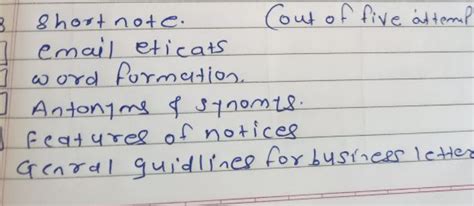 3 Short note. (out of five attemp
email eticats
word formation.
Antonyms & synomys.
Features of notices
Genral guidlines for business letter